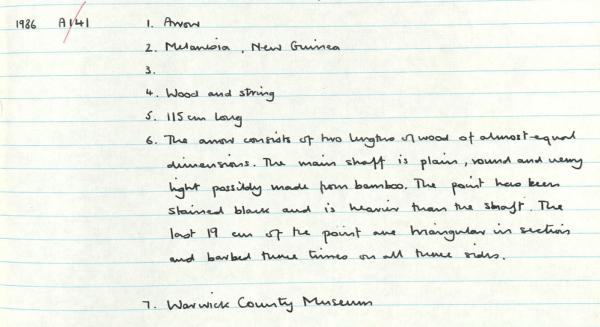 1986 A141 1. Arrow
2. Melanesia, New Guinea
3.
4. Wood and string
5. 115 cm long
6. The arrow consists of two lengths of wood of almost equal
dimensions. The main shaft is plain, round and very
light possibly made from bamboo. The point has been
stained black and is heavier than the shaft. The
last 19 cm of the point are triangular in section
and barbed three times on all three sides.
7. Warwick County Museum